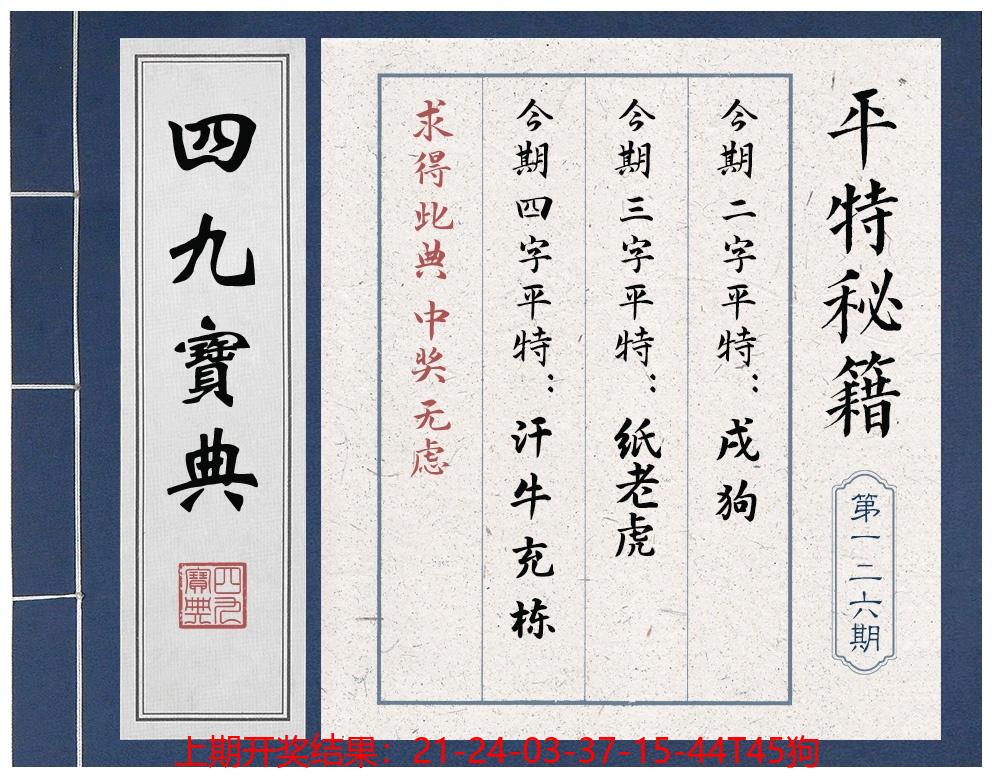 平特秘籍
第一二六期
今期二字平特：戌狗
今期三字平特：纸老虎
今期四字平特：汗牛充栋
求得此典 中奖无虑
四九寶典
四九寶典
上期开奖结果：21-24-03-37-15-44T45狗